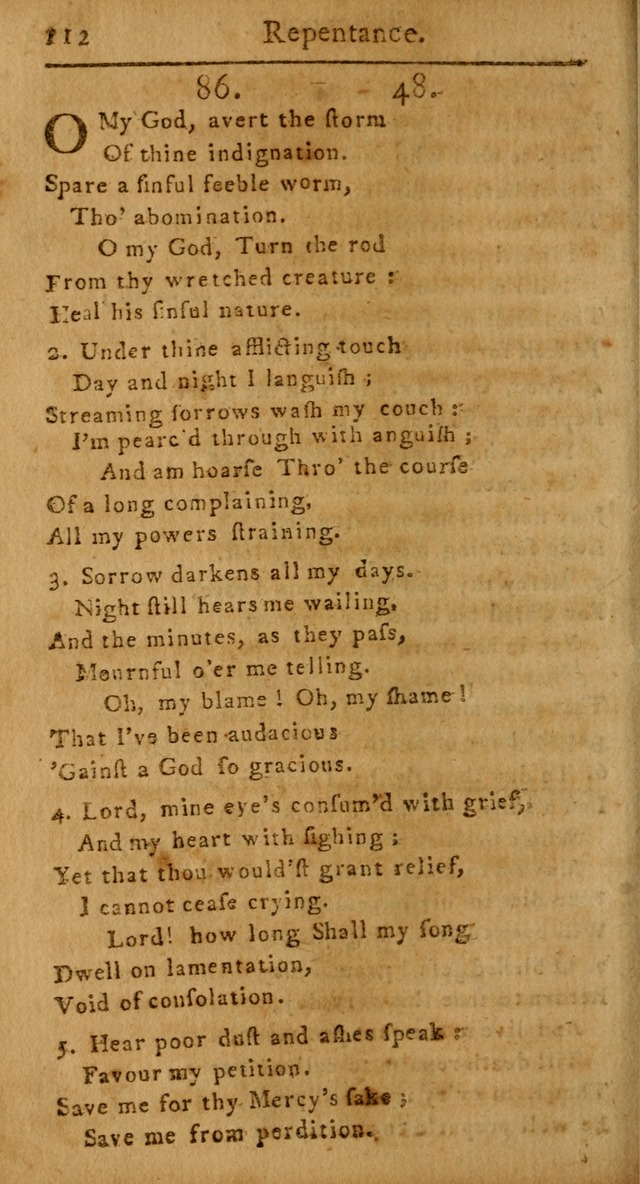 112 Repentance.
86. 48.
O My God, avert the ſtorm
Of thine indignation.
Spare a ſinful feeble worm,
Tho' abomination.
O my God, Turn the rod
From thy wretched creature :
Heal his ſinful nature.
2. Under thine afflicting touch
Day and night I languiſh ;
Streaming ſorrows waſh my couch :
I'm pearc'd through with anguiſh ;
And am hoarſe Thro' the courſe
Of a long complaining,
All my powers ſtraining.
3. Sorrow darkens all my days.
Night ſtill hears me wailing,
And the minutes, as they paſs,
Mournful o'er me telling.
Oh, my blame ! Oh, my ſhame !
That I've been audacious
'Gainſt a God ſo gracious.
4. Lord, mine eye's conſum'd with grief,
And my heart with ſighing ;
Yet that thou would'ſt grant relief,
I cannot ceaſe crying.
Lord! how long Shall my ſong
Dwell on lamentation,
Void of conſolation.
5. Hear poor duſt and aſhes ſpeak :
Favour my petition.
Save me for thy Mercy's ſake ;
Save me from perdition.